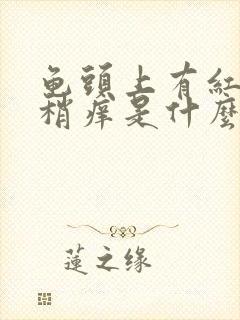 龟頭上有紅
稍痒是什麼
蓮之缘